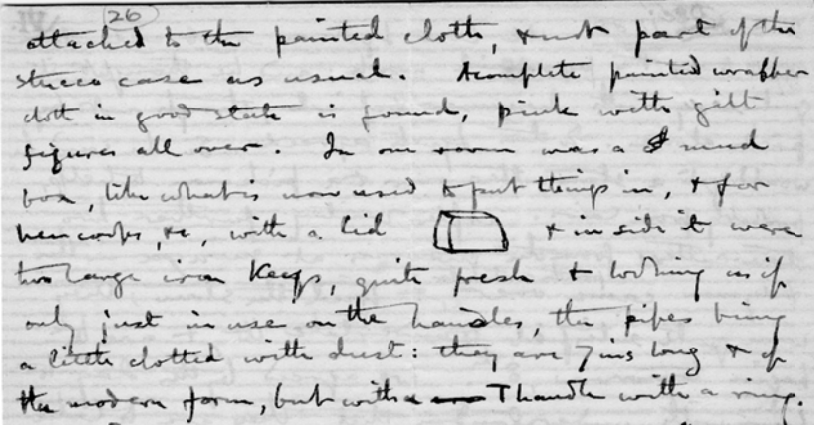 (26)
attached to the painted cloth, & not part of the
stucco case as usual. A complete painted wrapper
cloth in good state is found, pink with gilt
figures all over. In one room was a mud
box, like what is now used to put things in, & for
hencoops, &c, with a lid & inside it were
two large iron Keys, quite fresh & looking as if
only just in use on the handles, the pipes being
a little clotted with dust: they are 7 ins long & of
the modern form, but with a T handle with a ring.